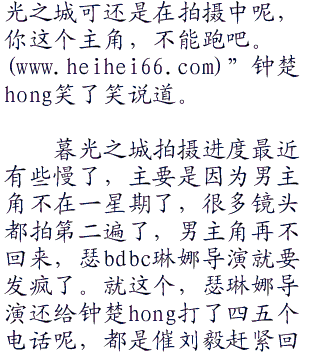 光之城可还是在拍摄中呢，
你这个主角，不能跑吧。
(www.heihei66.com)”钟楚
hong笑了笑说道。
暮光之城拍摄进度最近
有些慢了，主要是因为男主
角不在一星期了，很多镜头
都拍第二遍了，男主角再不
回来，瑟bdbc琳娜导演就要
发疯了。就这个，瑟琳娜导
演还给钟楚hong打了四五个
电话呢，都是催刘毅赶紧回